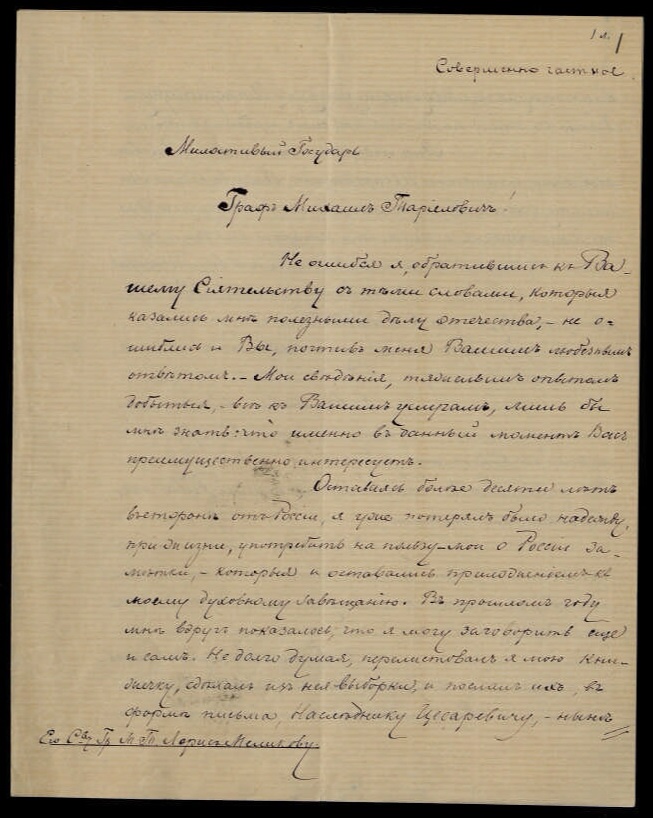 1 л. 1
Совершенно частное.
Милостивый Государь
Графъ Михаилъ Таріеловичъ!
Не ошибся я, обратившись къ Ва-
шему Сіятельству съ тѣми словами, которыя
казались мнѣ полезными дѣлу отечества, – не о-
шиблись и Вы, почтивъ меня Вашимъ любезнымъ
отвѣтомъ. – Мои свѣдѣнія, тяжелымъ опытомъ
добытыя, – всѣ къ Вашимъ услугамъ, лишь бы
мнѣ знать: что именно въ данный моментъ Васъ
преимущественно интересуетъ.
Оставаясь болѣе десяти лѣтъ
въ сторонѣ отъ Россіи, я уже потерялъ было надежду,
при жизни, употребить на пользу – мои о Россіи за-
мѣтки, – которыя и оставались приложеніемъ къ
моему духовному завѣщанію. Въ прошломъ году
мнѣ вдругъ показалось, что я могу заговорить еще
и самъ. Не долго думая, перелистовалъ я мою кни-
жечку, сдѣлалъ изъ нея выборки, и послалъ ихъ, въ
формѣ письма, Наслѣднику Цесаревичу, – нынѣ
Его С-ву Гр. М. Т. Лорисъ Меликову.